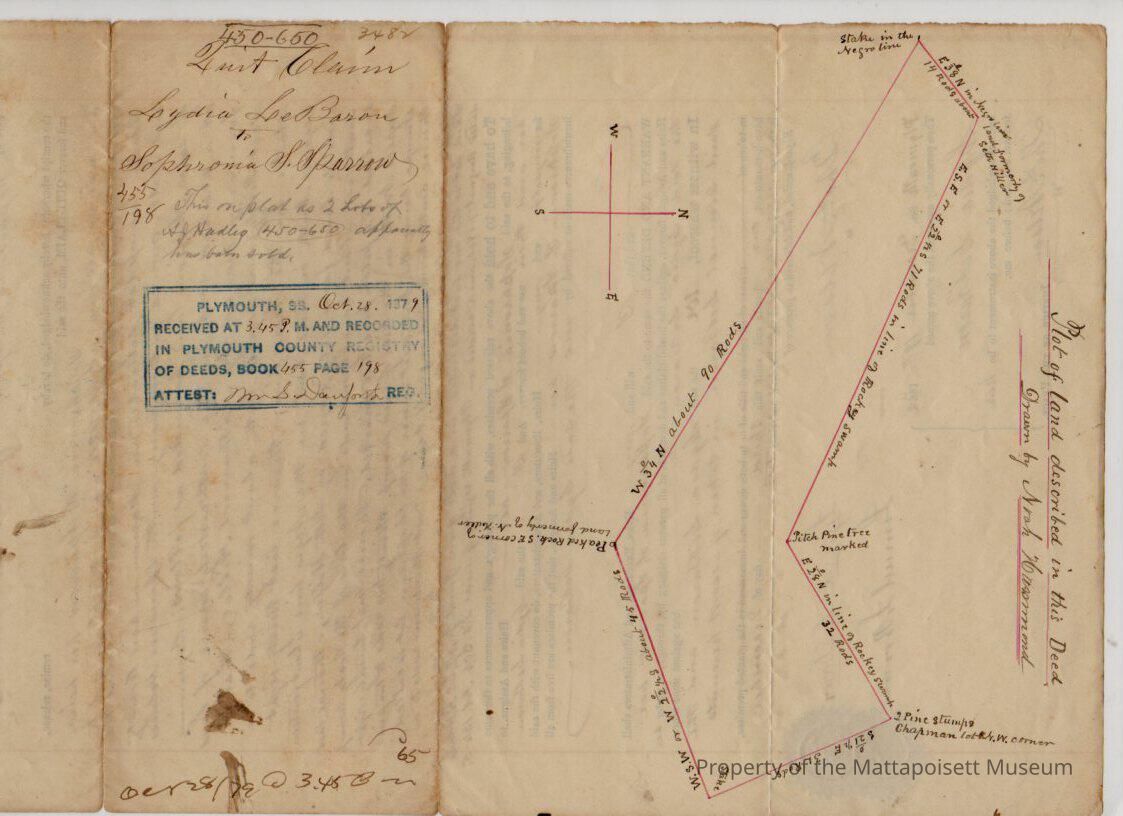 450-650
3482
Quit Claim
Lydia LeBaron
to
Sophronia S. Sparrow
455
198
This on plat as 2 Lots of
(450-650) apparently
has been sold.
PLYMOUTH, SS. Oct. 28. 1879
RECEIVED AT 3.45 P. M. AND RECORDED
IN PLYMOUTH COUNTY REGISTRY
OF DEEDS, BOOK 455 PAGE 198
ATTEST: Wm S. Danforth REG.
65
Oct 28/79 @ 3.45 P m
W
S
N
E
Stake in the
Negro line
E 38° N in Negro line
14 Rods about
land formerly of
Seth Hiller
E.S.E or E 22½ S 71 Rods in line of Rockey Swamp
W 34° N about 90 Rods
Peaked Rock. S E corner of
Land formerly of N. Hiller
Pitch Pine tree
marked
E 28° N in line of Rockey Swamp
32 Rods
2 Pine Stumps
Chapman lot N.W. corner
S 21½° E
Stake
W.S.W or W 22½° S about 45 Rods
Plot of land described in this Deed
Drawn by Noah Hammond
Property of the Mattapoisett Museum